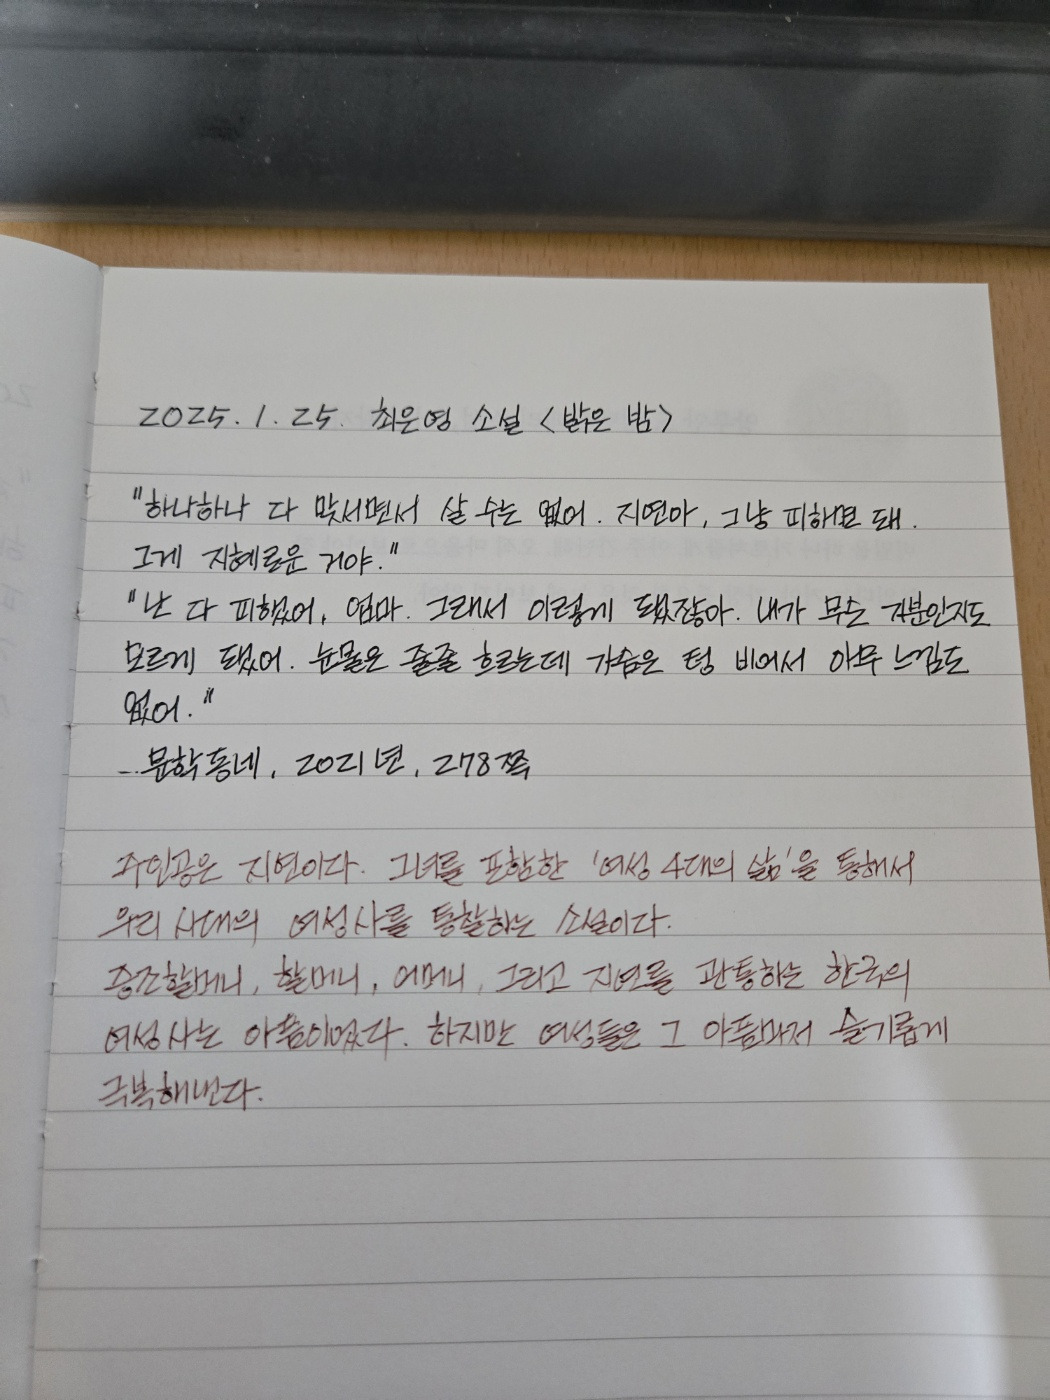 2025. 1. 25. 최은영 소설 <밝은 밤>
"하나하나 다 맞서면서 살 수는 없어. 지연아, 그냥 피하면 돼.
그게 지혜로운 거야."
"난 다 피했어, 엄마. 그래서 이렇게 됐잖아. 내가 무슨 기분인지도
모르게 됐어. 눈물은 줄줄 흐르는데 가슴은 텅 비어서 아무 느낌도
없어."
... 문학동네, 2021년, 278쪽
주인공은 지연이다. 그녀를 포함한 '여성 4대의 삶'을 통해서
우리 시대의 여성사를 통찰하는 소설이다.
증조할머니, 할머니, 어머니, 그리고 지연을 관통하는 한국의
여성사는 아픔이었다. 하지만 여성들은 그 아픔마저 슬기롭게
극복해낸다.